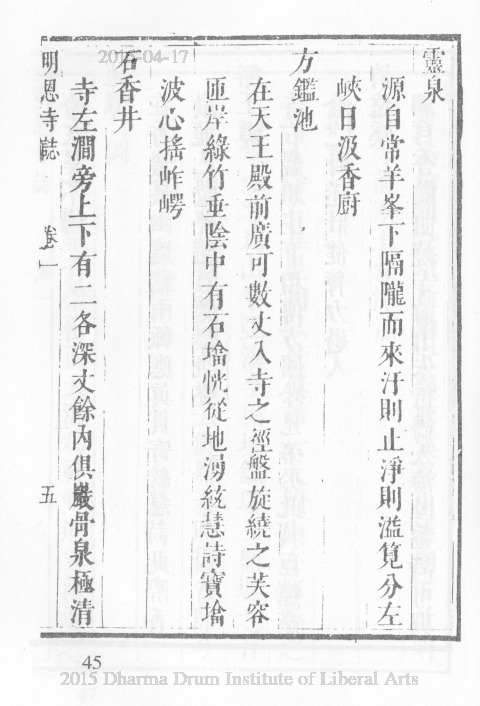 靈泉
源自常羊峯下隔隴而來汙則止淨則溢筧分左
峽日汲香厨
方鑑池
在天王殿前廣可數丈入寺之逕盤旋繞之芙容
匝岸綠竹垂陰中有石墖恍從地湧統慧詩寶墖
波心搖岞崿
石香井
寺左澗旁上下有二各深丈餘內俱巖骨泉極清
明恩寺誌
卷一
五
2015-04-17
45
2015 Dharma Drum Institute of Liberal Arts